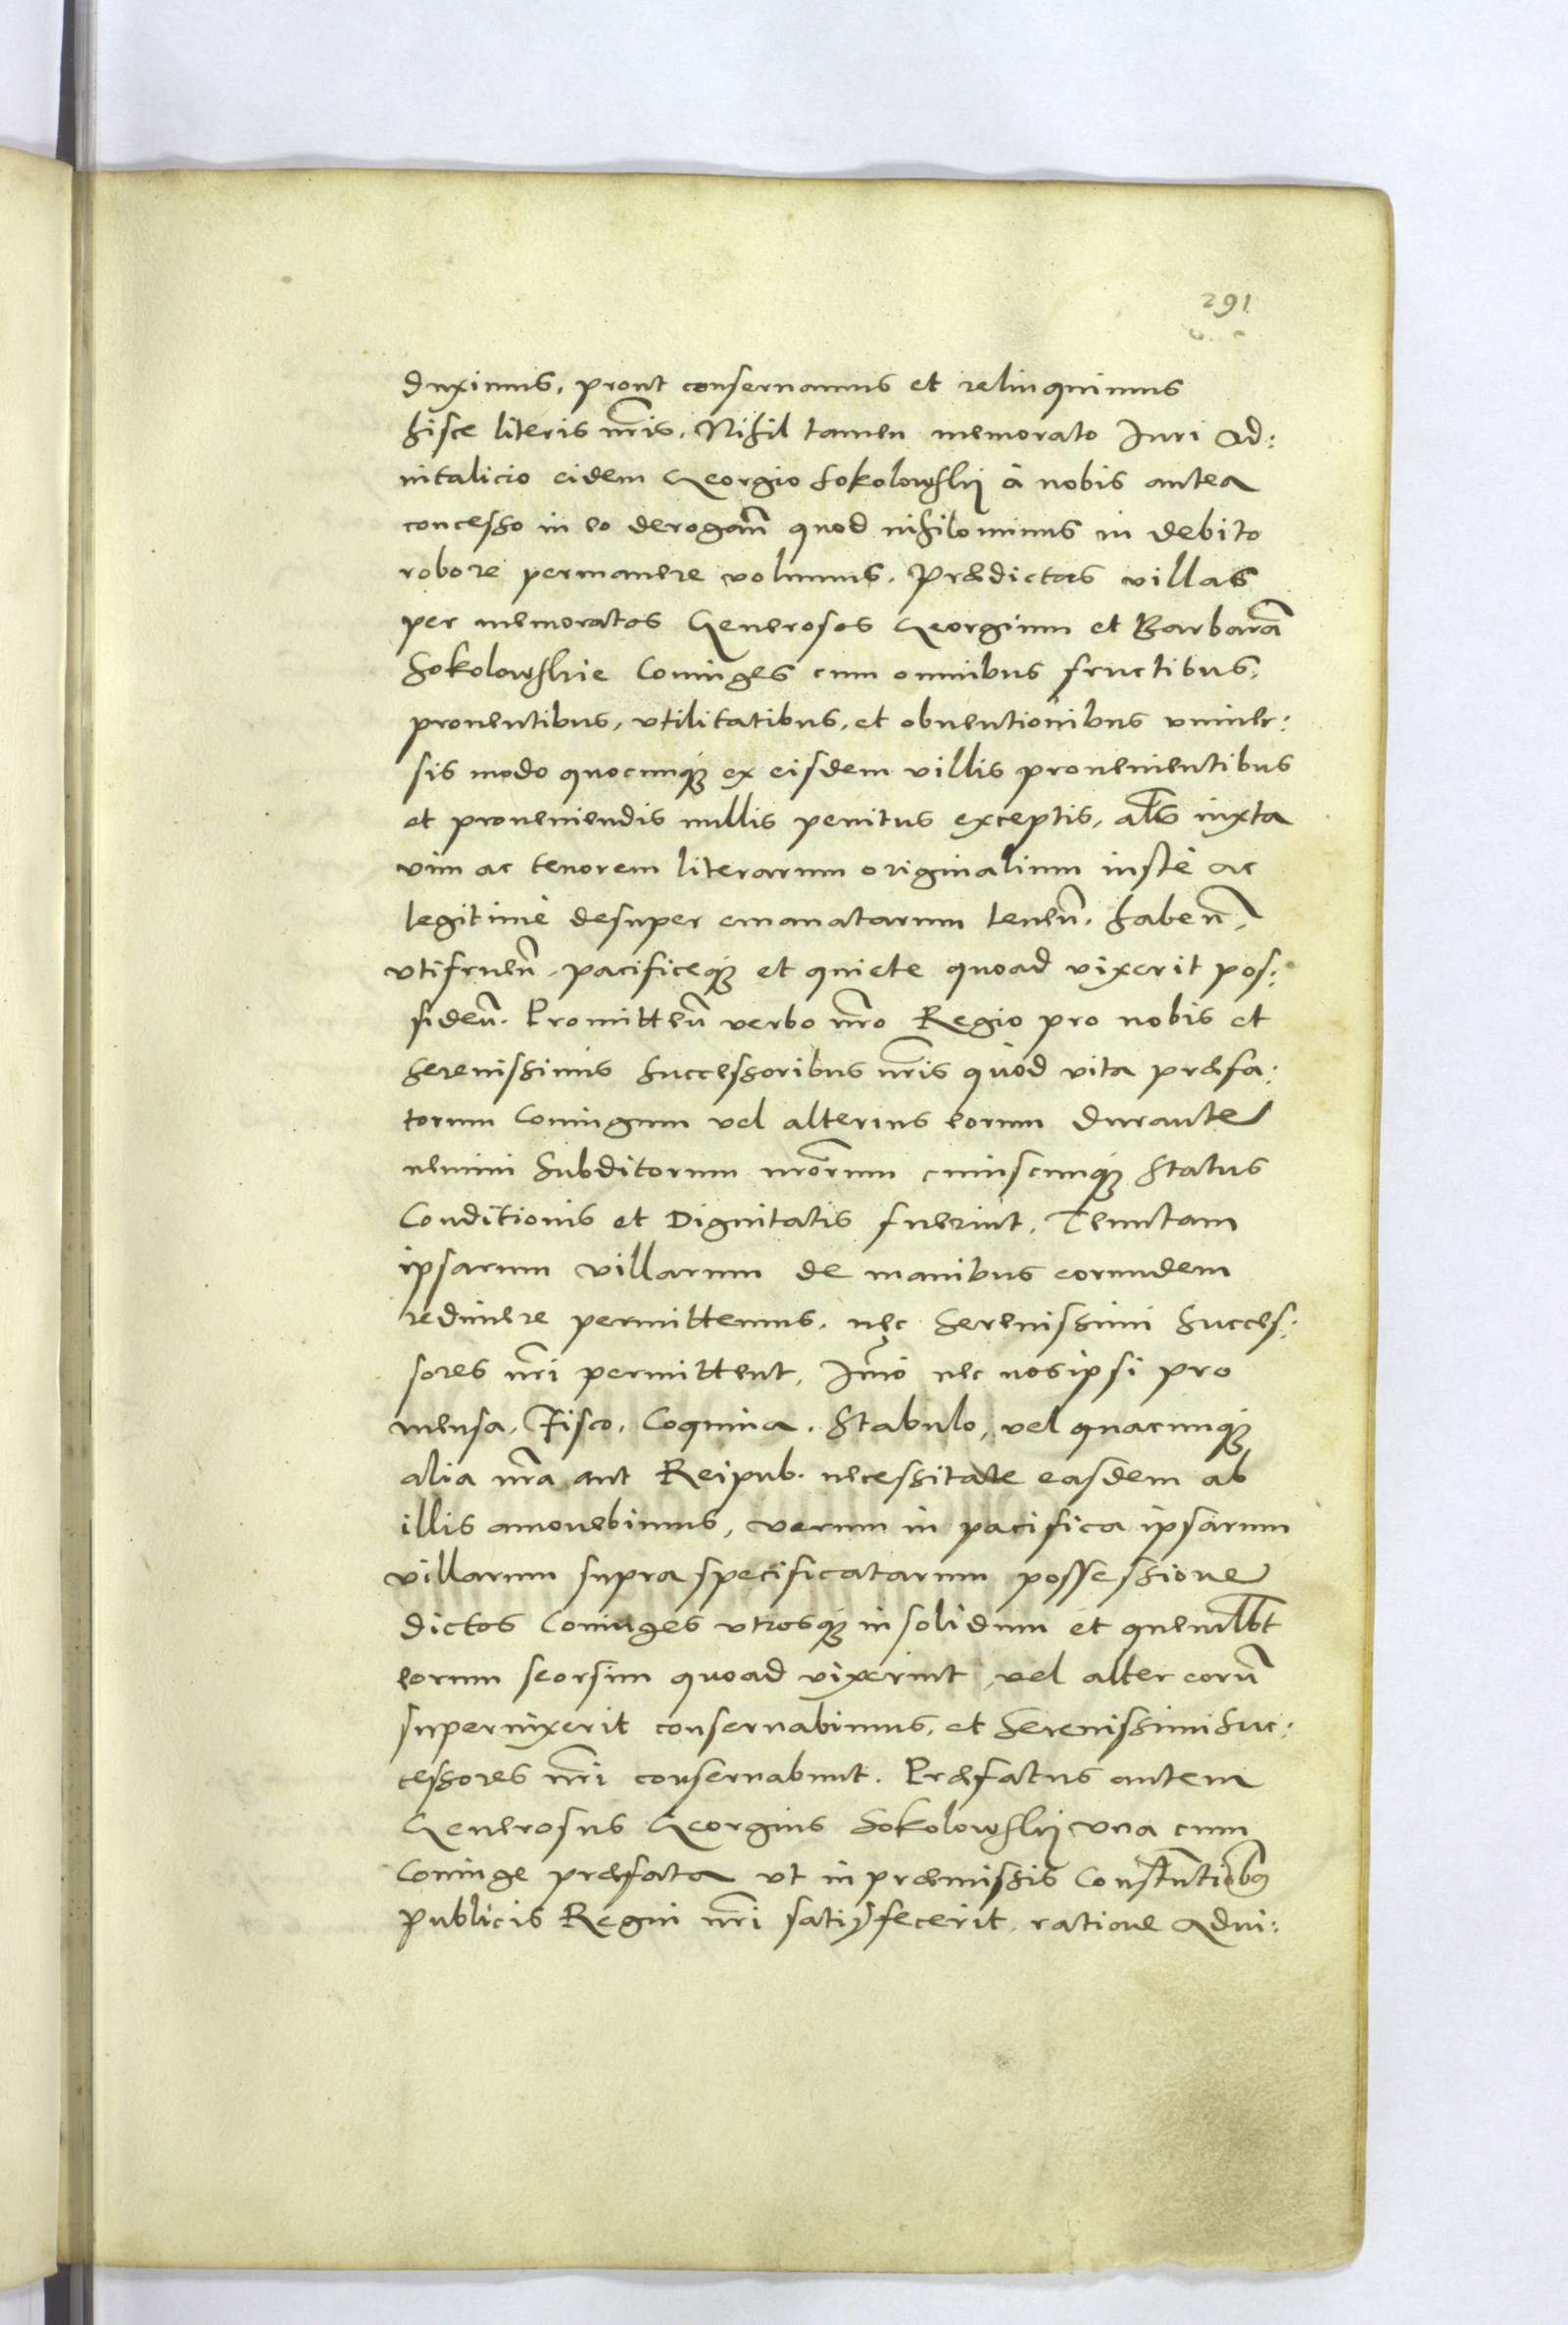 291
duximus, prout conservamus et relinquimus
hisce literis nr̃is. Nihil tamen memorato Juri ad:
vitalicio eidem Georgio Sokolowskij à nobis antea
concesso in eo derogañ quod nihilominus in debito
robore permanere volumus. Prædictas villas
per memoratos Generosos Georgium et Barbarã
Sokolowskie Coniuges cum omnibus fructibus,
proventibus, utilitatibus, et obventionibus univer:
sis modo quocunq; ex eisdem villis provenientibus
et proveniendis nullis penitus exceptis, als̃ iuxta
vim ac tenorem literarum originalium iustè ac
legitimè desuper emanatarum teneñ. habeñ,
utifrueñ. pacificeq; et quiete quoad vixerit pos:
sideñ. Promitteñ verbo nr̃o Regio pro nobis et
Serenissimis Successoribus nr̃is quòd vita præfa:
torum Coniugum vel alterius eorum durante
nemini Subditorum nr̃orum cuiuscunq; Status
Conditionis et Dignitatis fuerint, Tenutam
ipsarum villarum de manibus eorundem
redimere permittemus, nec Serenissimi Succes:
sores nr̃i permittent, Im̃o nec nosipsi pro
mensa, Fisco, Coquina, Stabulo, vel quacunq;
alia nr̃a aut Reipub. necessitate easdem ab
illis amovebimus, verum in pacifica ipsarum
villarum supra specificatarum possessione
dictos Coniuges utrosq; in solidum et quemlibt̃
eorum seorsim quoad vixerint, vel alter eorũ
supervixerit conservabimus, et Serenissimi Suc:
cessores nr̃i conservabunt. Præfatus autem
Generosus Georgius Sokolowskij una cum
Coniuge præfata ut in præmissis Constitutiõbus
publicis Regni nr̃i satisfecerit, ratione advi: